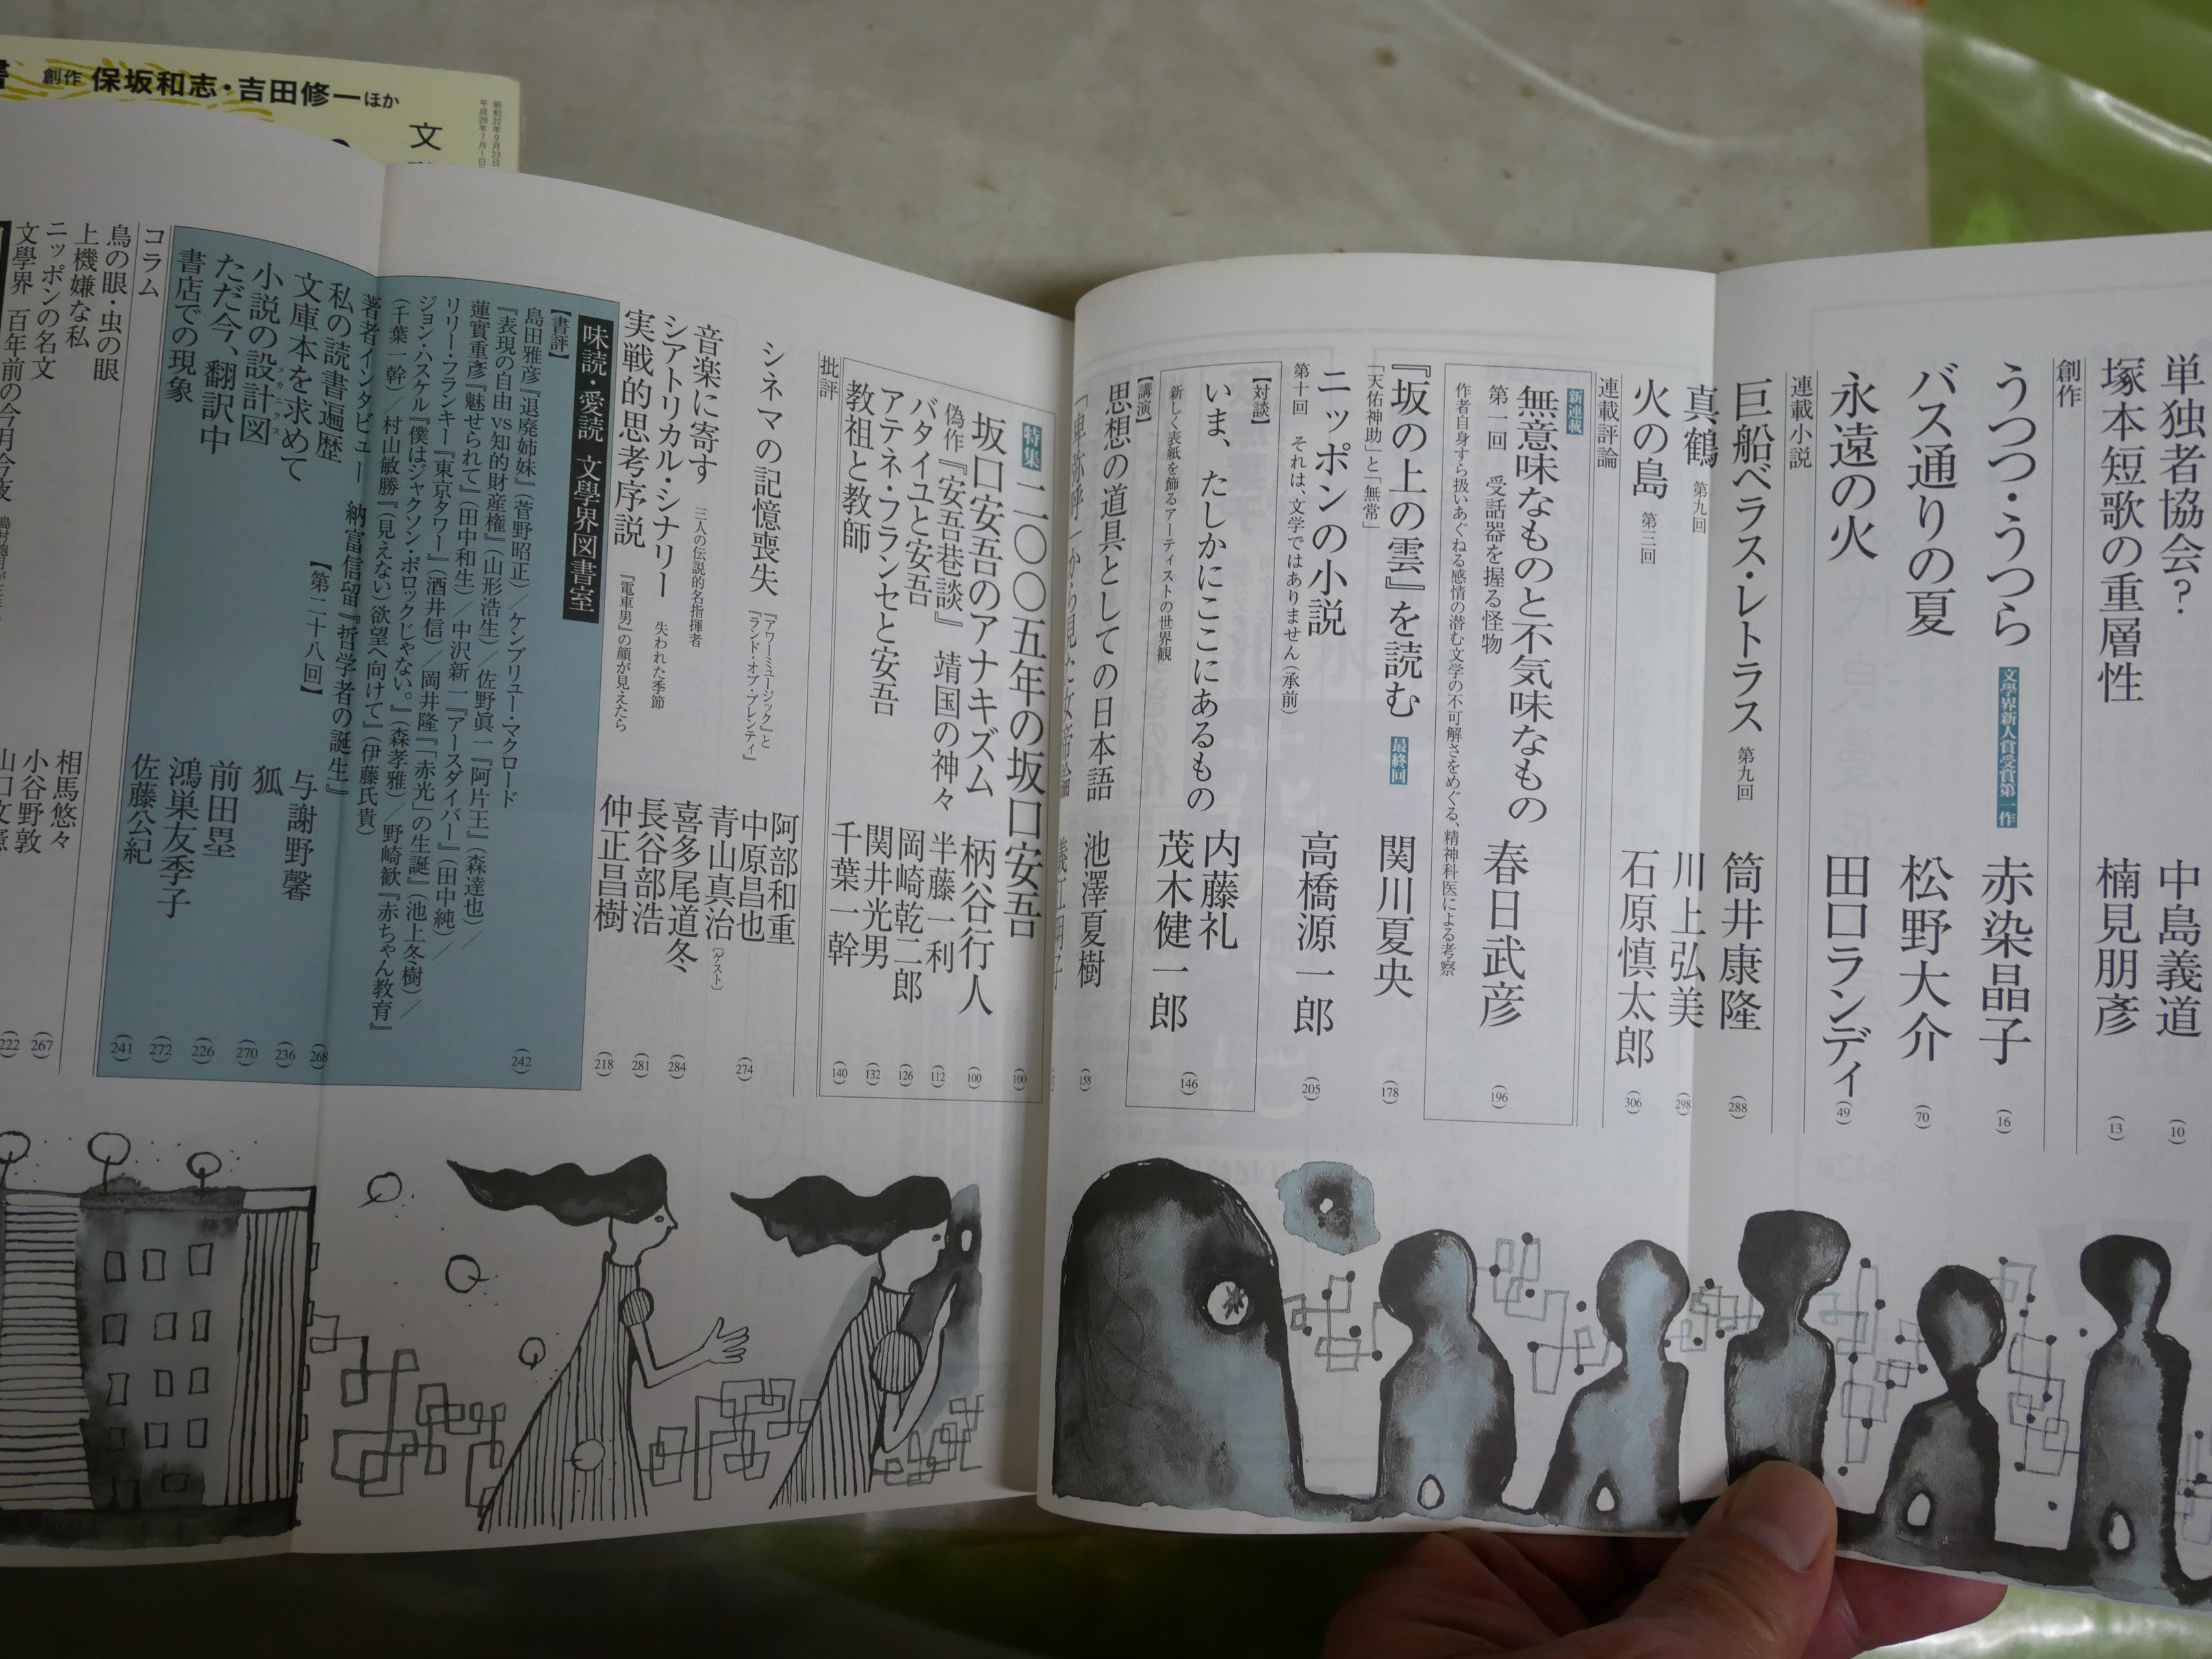 創作 保坂和志・吉田修一ほか
文
昭和22年9月23日
平成28年7月1日
単独者協会?
中島義道
(10)
塚本短歌の重層性
楠見朋彦
(13)
創作
うつつ・うつら
文學界新人賞受賞第一作
赤染晶子
(16)
バス通りの夏
松野大介
(70)
永遠の火
田口ランディ
(49)
連載小説
巨船ベラス・レトラス
第九回
筒井康隆
(288)
真鶴
第九回
川上弘美
(298)
火の島
第三回
石原慎太郎
(306)
連載評論
新連載
無意味なものと不気味なもの
春日武彦
(196)
第一回 受話器を握る怪物
作者自身すら扱いあぐねる感情の潜む文学の不可解さをめぐる、精神科医による考察
『坂の上の雲』を読む
最終回
関川夏央
(178)
「天佑神助」と「無常」
ニッポンの小説
高橋源一郎
(205)
第十回 それは、文学ではありません(承前)
【対談】
いま、たしかにここにあるもの
内藤礼
茂木健一郎
(146)
新しく表紙を飾るアーティストの世界観
【講演】
思想の道具としての日本語
池澤夏樹
(158)
特集
二〇〇五年の坂口安吾
(100)
坂口安吾のアナキズム
柄谷行人
(100)
偽作『安吾巷談』 靖国の神々
半藤一利
(112)
バタイユと安吾
岡崎乾二郎
(126)
アテネ・フランセと安吾
関井光男
(132)
教祖と教師
千葉一幹
(140)
批評
シネマの記憶喪失
『アワーミュージック』と
『ランド・オブ・プレンティ』
阿部和重
中原昌也
(274)
青山真治
〔ゲスト〕
音楽に寄す
三人の伝説的名指揮者
喜多尾道冬
(284)
シアトリカル・シナリー
失われた季節
長谷部浩
(281)
実戦的思考序説
『電車男』の顔が見えたら
仲正昌樹
(218)
味読・愛読 文學界図書室
【書評】
(242)
島田雅彦『退廃姉妹』(菅野昭正)/ケンブリュー・マクロード
『表現の自由vs知的財産権』(山形浩生)/佐野眞一『阿片王』(森達也)/
蓮實重彦『魅せられて』(田中和生)/中沢新一『アースダイバー』(田中純)/
リリー・フランキー『東京タワー』(酒井信)/岡井隆『「赤光」の生誕』(池上冬樹)/
ジョン・ハスケル『僕はジャクソン・ポロックじゃない。』(森孝雅)/野崎歓『赤ちゃん教育』
(千葉一幹)/村山敏勝『(見えない)欲望へ向けて』(伊藤氏貴)
著者インタビュー 納富信留『哲学者の誕生』
(268)
私の読書遍歴
【第二十八回】
与謝野馨
(236)
文庫本を求めて
狐
(270)
小説の設計図
メカニクス
前田塁
(226)
ただ今、翻訳中
鴻巣友季子
(272)
書店での現象
佐藤公紀
(241)
コラム
鳥の眼・虫の眼
相馬悠々
(267)
上機嫌な私
小谷野敦
(222)
ニッポンの名文
文學界 百年前の今月今夜